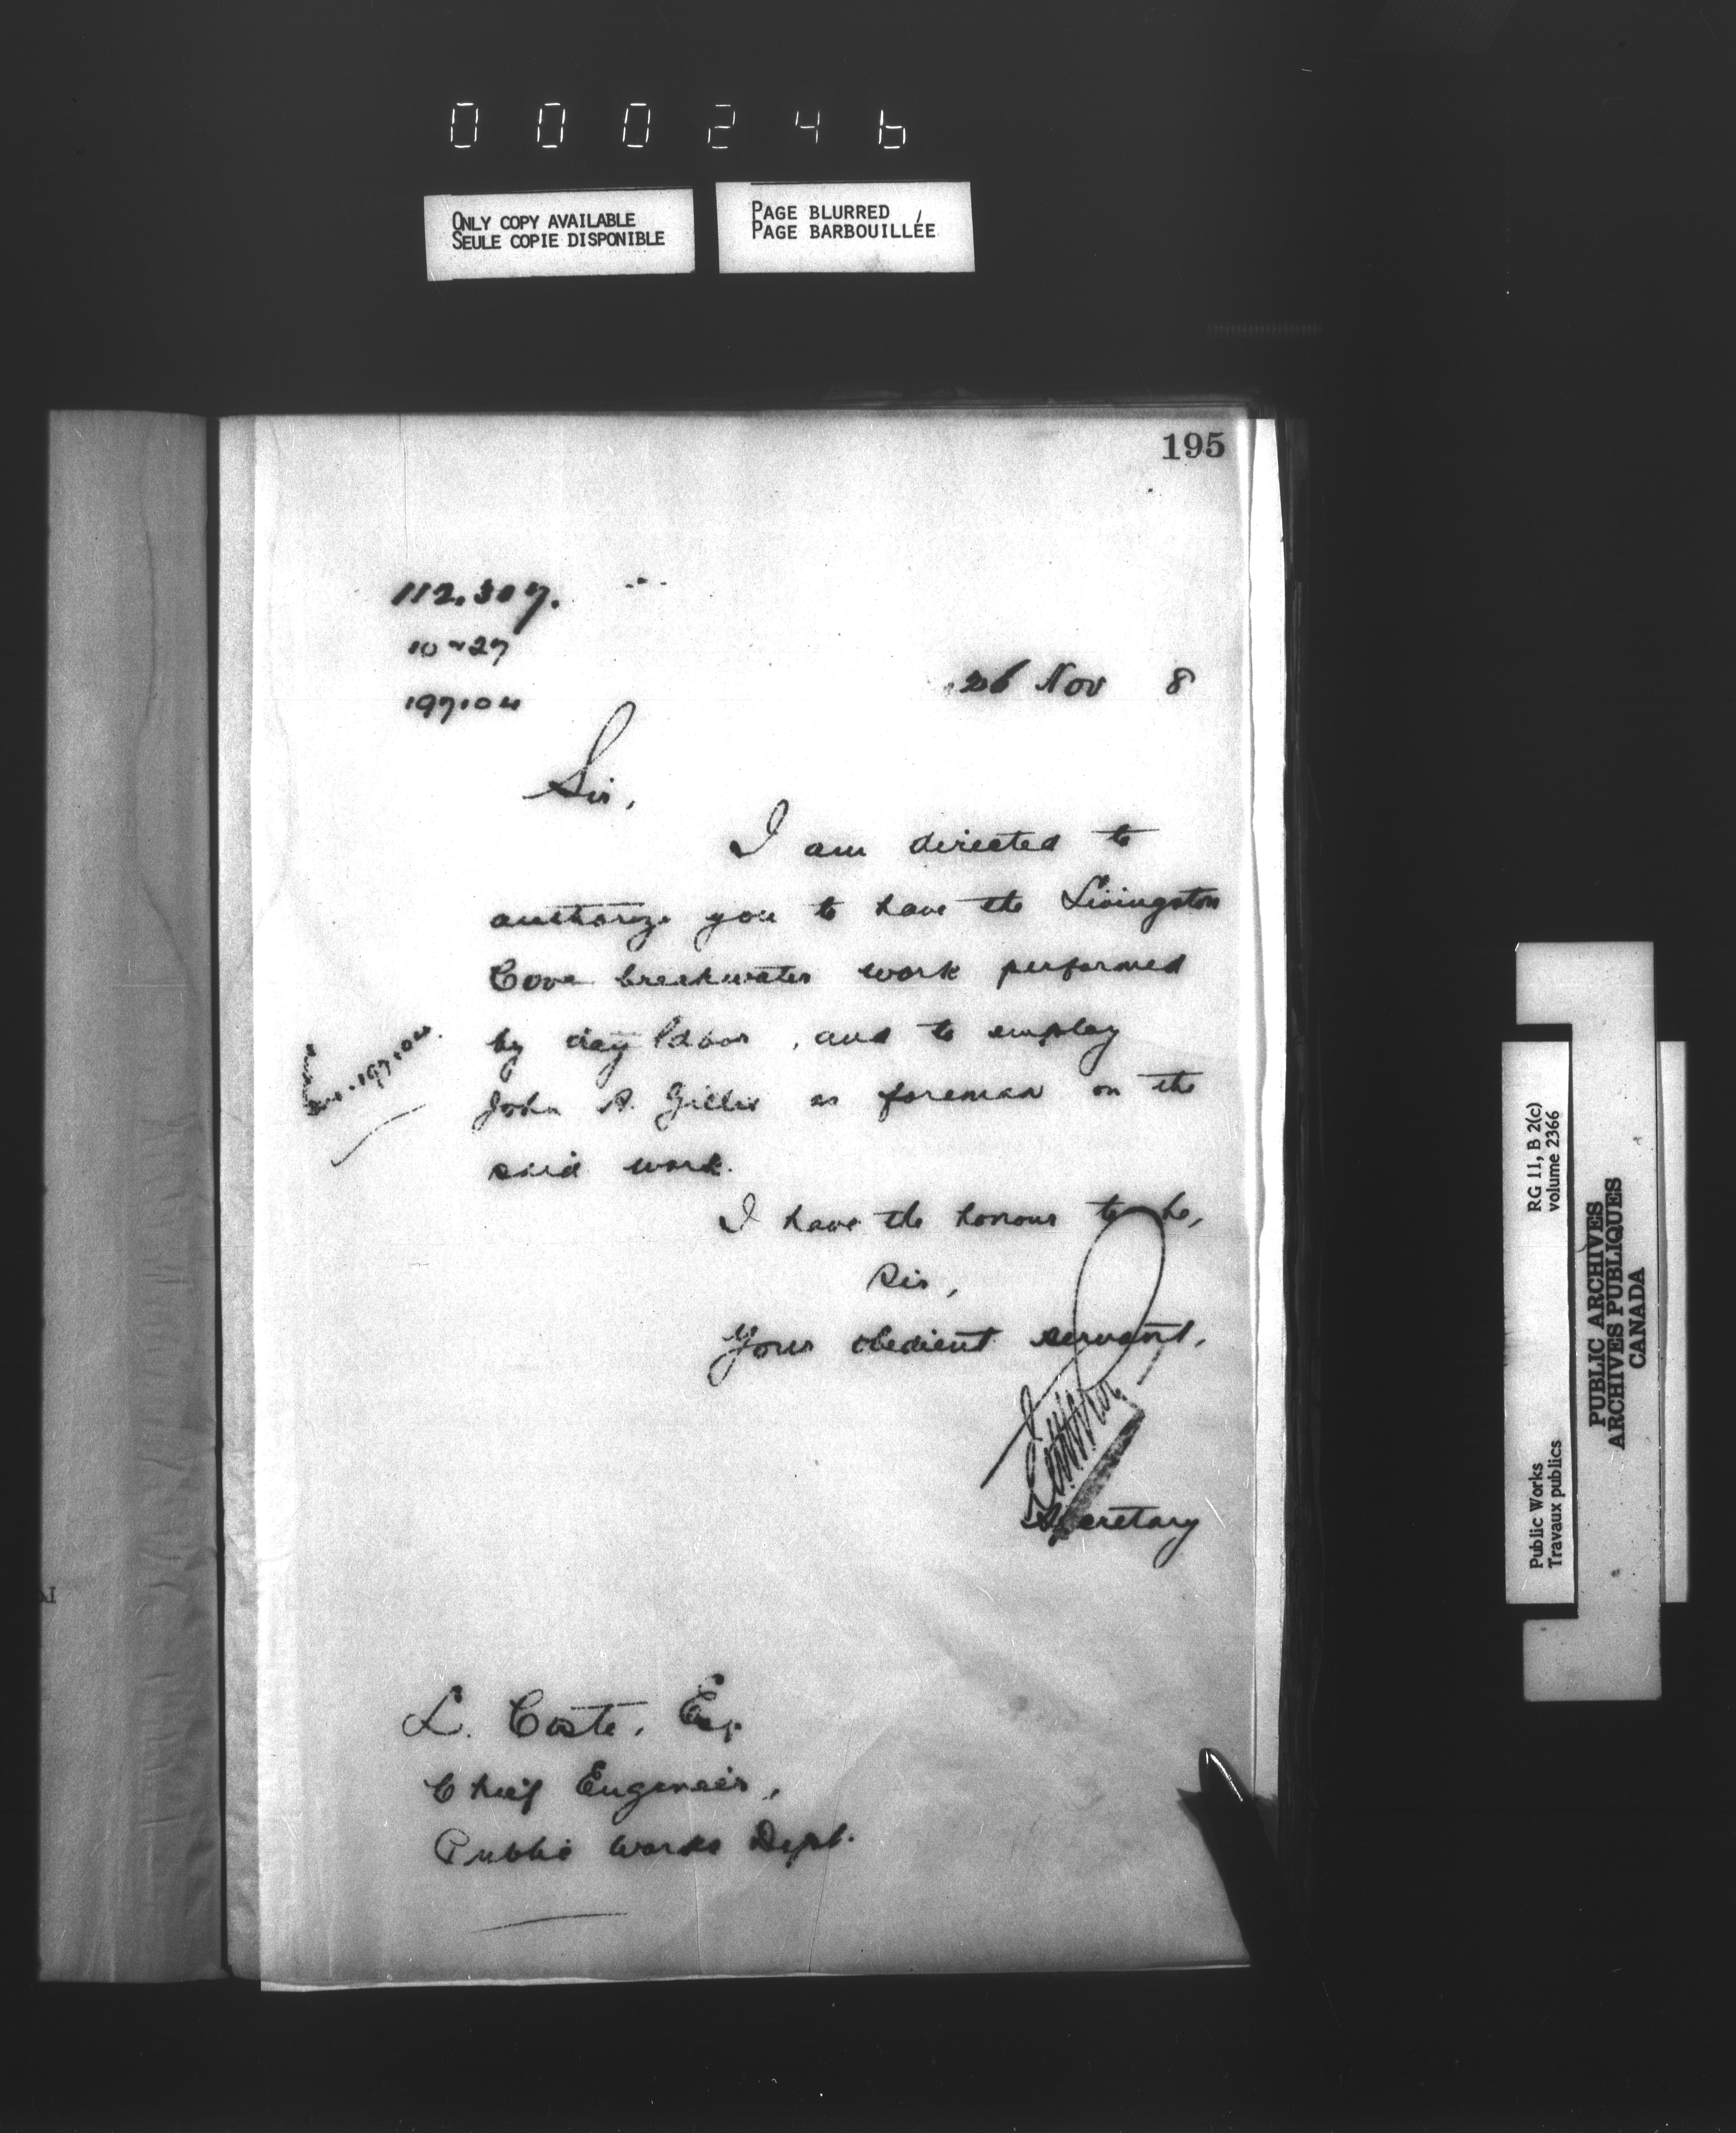 000246
ONLY COPY AVAILABLE
SEULE COPIE DISPONIBLE
PAGE BLURRED
PAGE BARBOUILLÉE
195
112.307.
10-27
197104
26 Nov 8
Sir,
I am directed to
authorize you to have the Livingston
Cove breakwater work performed
by day labour, and to employ
John A. Gillis as foreman on the
said work.
197104.
I have the honour to be,
Sir,
Your obedient servant,
Secretary
L. Coste, Esq
Chief Engineer,
Public Works Dept.
RG 11, B 2(c)
volume 2366
Public Works
Travaux publics
PUBLIC ARCHIVES
ARCHIVES PUBLIQUES
CANADA